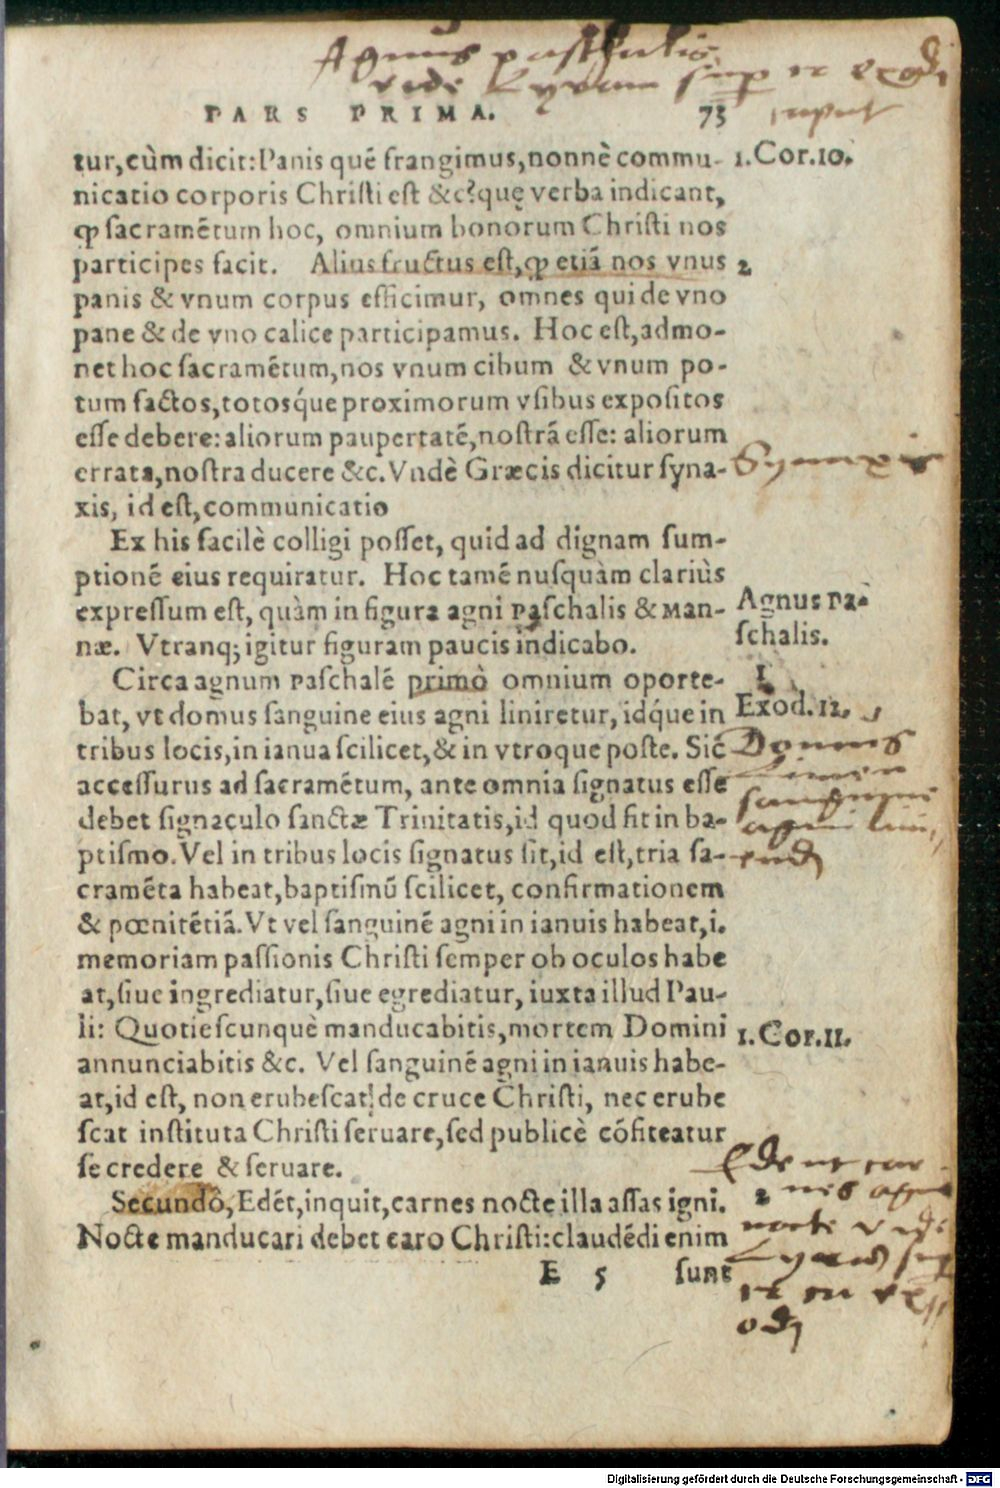 Agnus paschalis
vide Lyram sup 12 exodi
caput
PARS PRIMA. 73
tur, cùm dicit: Panis quẽ frangimus, nonnè commu- 1. Cor. 10.
nicatio corporis Christi est &c? quę verba indicant,
ꝙ sacramẽtum hoc, omnium bonorum Christi nos
participes facit. Alius fructus est, ꝙ etiã nos vnus 2
panis & vnum corpus efficimur, omnes qui de vno
pane & de vno calice participamus. Hoc est, admo-
net hoc sacramẽtum, nos vnum cibum & vnum po-
tum factos, totosq́ue proximorum vsibus expositos
esse debere: aliorum paupertatẽ, nostrã esse: aliorum
errata, nostra ducere &c. Vndè Græcis dicitur syna- Synaxis
xis, id est, communicatio
Ex his facilè colligi posset, quid ad dignam sum-
ptionẽ eius requiratur. Hoc tamẽ nusquàm clariùs
expressum est, quàm in figura agni Paschalis & Man- Agnus Pa-
næ. Vtranq; igitur figuram paucis indicabo. schalis.
Circa agnum Paschalẽ primò omnium oporte- 1
bat, vt domus sanguine eius agni liniretur, idq́ue in Exod. 12.
tribus locis, in ianua scilicet, & in vtroque poste. Sic Domus
accessurus ad sacramẽtum, ante omnia signatus esse limen
debet signaculo sanctæ Trinitatis, id quod fit in ba- sanguine
ptismo. Vel in tribus locis signatus sit, id est, tria sa- agni lini,
cramẽta habeat, baptismũ scilicet, confirmationem
& pœnitẽtiã. Vt vel sanguinẽ agni in ianuis habeat, i.
memoriam passionis Christi semper ob oculos habe
at, siue ingrediatur, siue egrediatur, iuxta illud Pau-
li: Quotiescunquè manducabitis, mortem Domini 1. Cor. 11.
annunciabitis &c. Vel sanguinẽ agni in ianuis habe-
at, id est, non erubescat de cruce Christi, nec erube
scat instituta Christi seruare, sed publicè cõfiteatur
se credere & seruare. Edent car-
Secundò, Edẽt, inquit, carnes nocte illa assas igni. 2 nes agni
Nocte manducari debet caro Christi: claudẽdi enim nocte vide
E 5 sunt Lyram sup
12 ex
odi
Digitalisierung gefördert durch die Deutsche Forschungsgemeinschaft - DFG